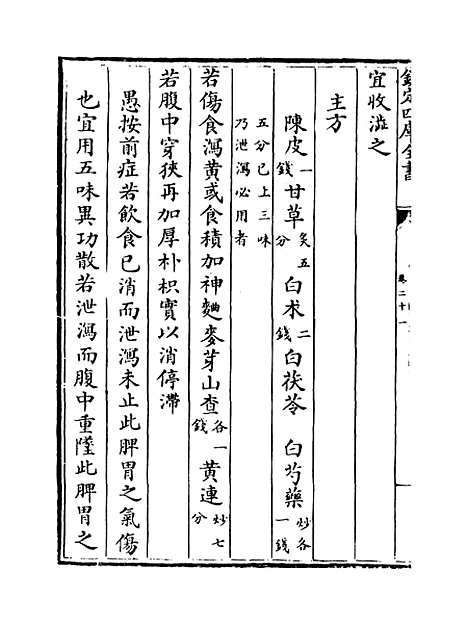 欽定四庫全書
卷二十一
宜收澁之
主方
陳皮一錢甘草炙五分白术二錢白茯苓 白芍藥炒各一錢
五分已上三味乃泄瀉必用者
若傷食瀉黄或食積加神麯麥芽山查各一錢黄連炒七分
若腹中窄狹再加厚朴枳實以消停滯
愚按前症若飲食已消而泄瀉未止此脾胃之氣傷
也宜用五味異功散若泄瀉而腹中重墜此脾胃之